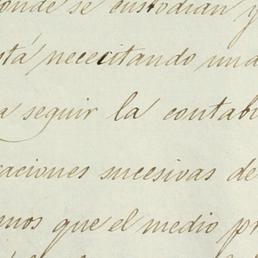 onde se custodian y
stá nececitando una
a seguir la contabi
caciones sucesivas de
mos que el medio pr